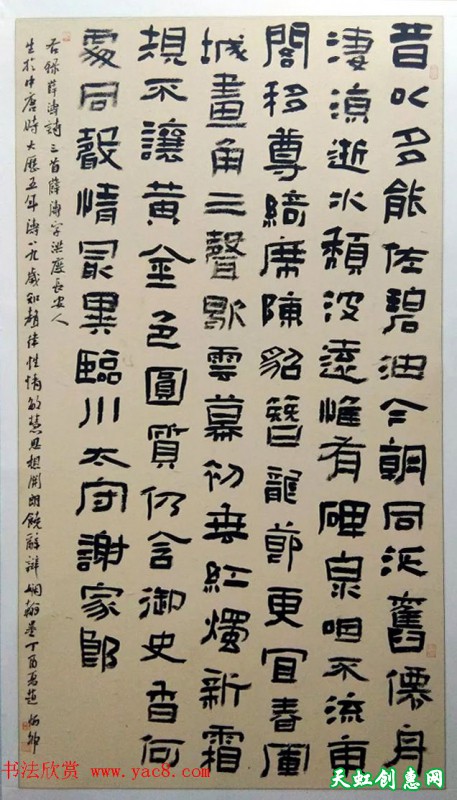 昔以多能佐碧油今朝同泛舊僊舟
淒涼逝水頹波遠惟有碑泉咽不流東
閣移尊綺席陳貂簪龍節更宜春軍
城畫角三聲歇雲幕初垂紅燭新霜
規不讓黃金色圓質仍含御史香何
處同聲情最異臨川太守謝家郎
右錄薛濤詩三首薛濤字洪度長安人
生於中唐時大歷五年濤八九歲知聲律性情敏慧思想開朗饒辭辯嫻翰墨丁酉夏
书法欣赏 www.yac8.com
天虹创惠网